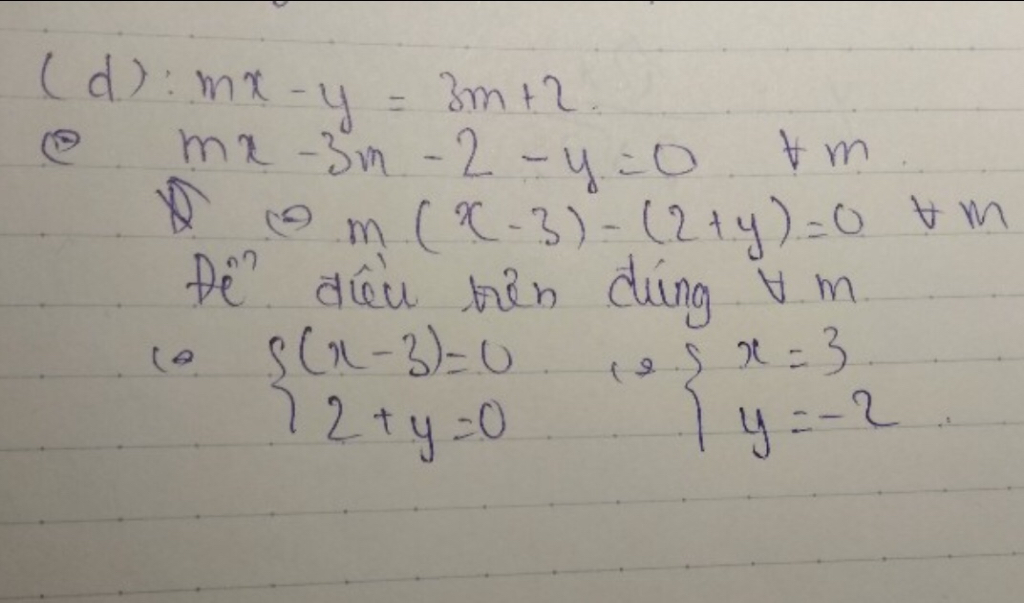 (d): mx - y = 3m + 2.
⇔ mx - 3m - 2 - y = 0 ∀ m.
⇔ m (x - 3) - (2 + y) = 0 ∀ m
Để điều trên đúng ∀ m
⇔ { (x - 3) = 0 ⇔ { x = 3
2 + y = 0 y = -2.